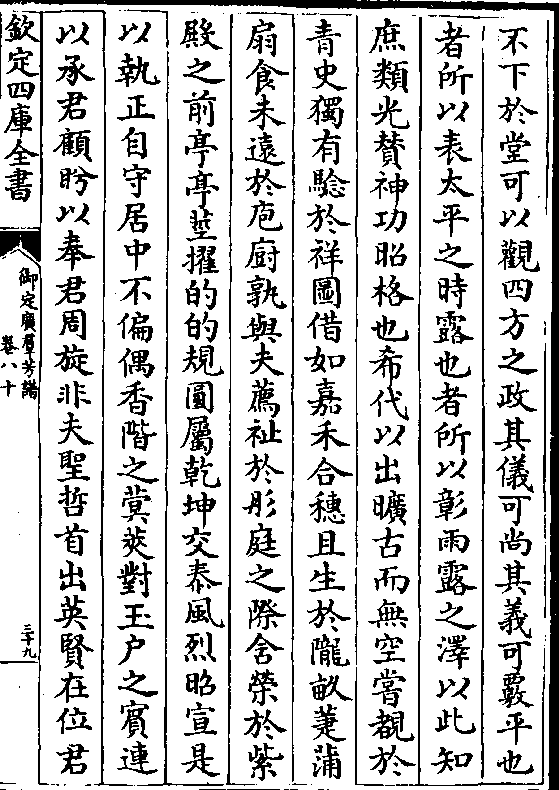 不下於堂可以觀四方之政其儀可尚其義可覈平也
者所以表太平之時露也者所以彰雨露之澤以此知
庶類光贊神功昭格也希代以出曠古而無空嘗覩於
青史獨有驗於祥圖借如嘉禾合穗且生於隴畝萐蒲
扇食未遠於庖廚孰與夫薦祉於彤庭之際含榮於紫
殿之前亭亭莖擢的的規圓屬乾坤交泰風烈昭宣是
以執正自守居中不偏偶香階之蓂莢對玉户之賓連
以承君顧眄以奉君周旋非夫聖哲首出英賢在位君
欽定四庫全書
御定廣羣芳譜
卷八十
三十九